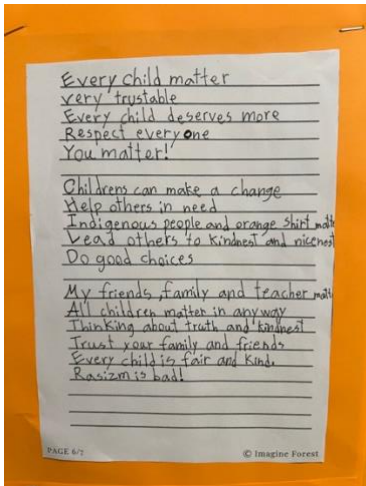 Every child matter
very trustable
Every child deserves more
Respect everyone
You matter!
Childrens can make a change
Help others in need
Indigenous people and orange shirt matte
Lead others to kindnest and nicenest
Do good choices
My friends, family and teacher matt
All children matter in anyway
Thinking about truth and kindnest
Trust your family and friends
Every child is fair and kind.
Rasizm is bad!
PAGE 6/7
© Imagine Forest